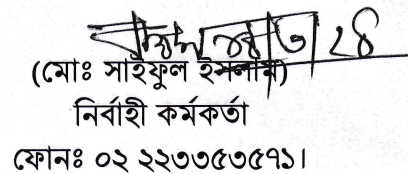 (মোঃ সাইফুল ইসলাম)
নির্বাহী কর্মকর্তা
ফোনঃ ০২ ২২৩৩৫৩৫৭১।